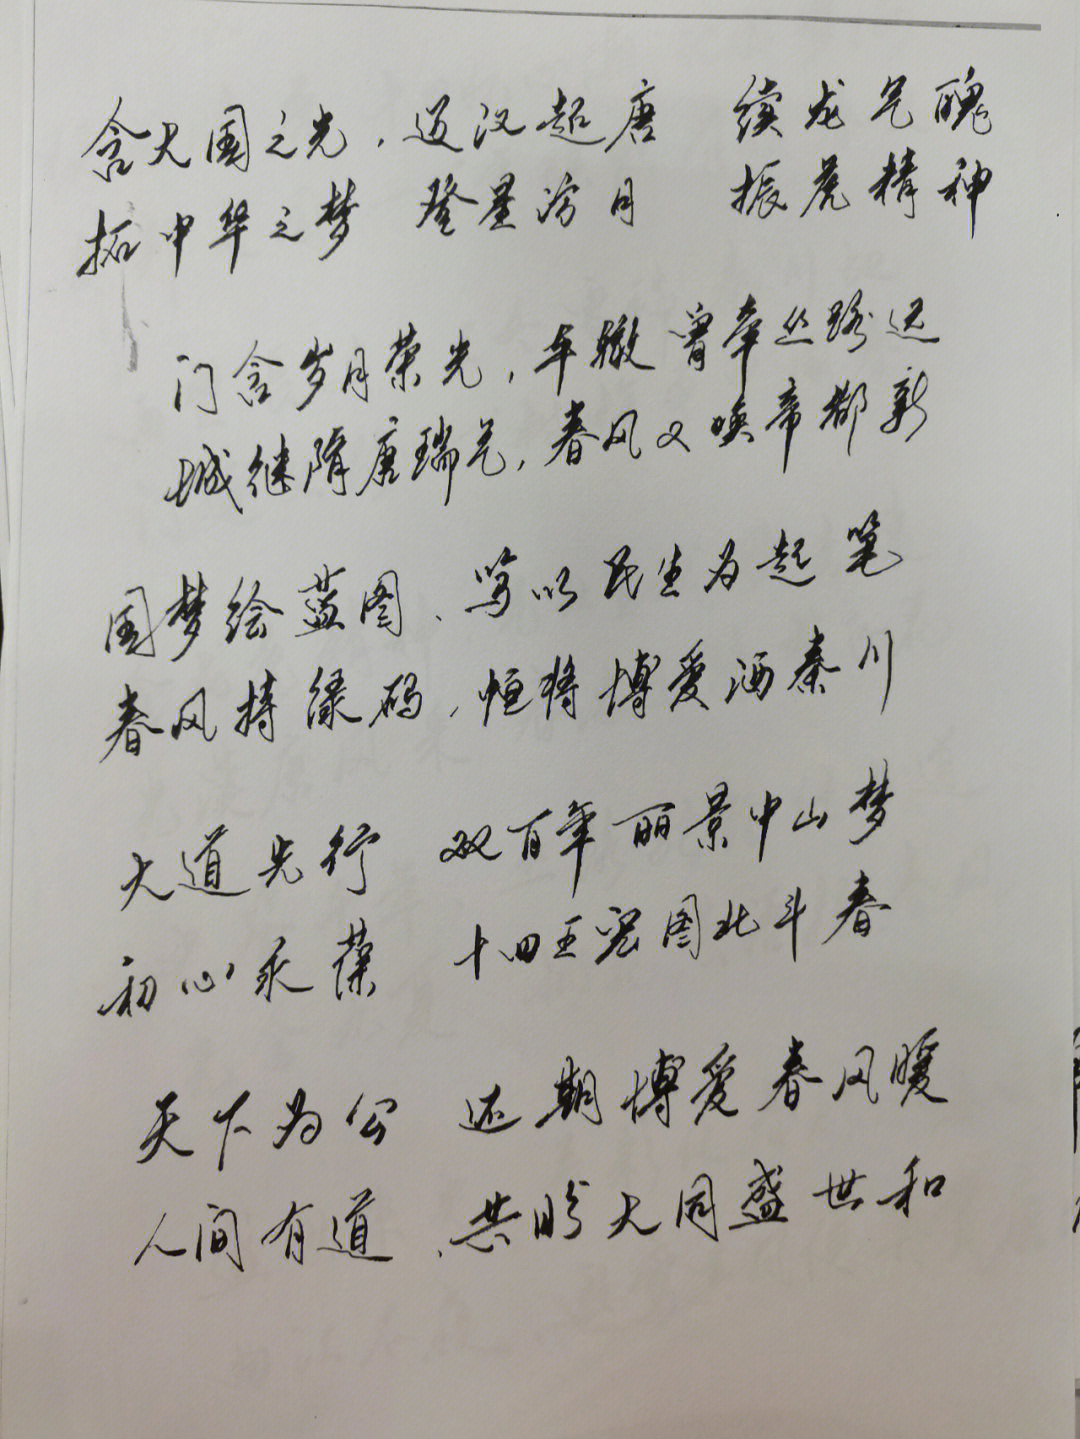 含大国之光，迈汉起唐 续龙气魄
拓中华之梦 登星涝月 振虎精神
门含岁月荣光，车辙曾牵丝路远
城继隋唐瑞气，春风又唤帝都新
国梦绘蓝图、笃以民生为起笔
春风持绿码，恒将博爱洒秦川
大道先行 双百年丽景中山梦
初心永葆 十四五宏图北斗春
天下为公 还期博爱春风暖
人间有道、共盼大同盛世和